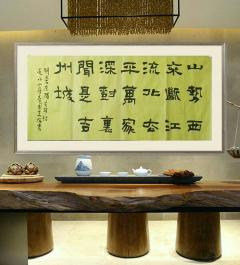 山勢西
來斷江
流北去
平萬家
深樹裏
聞是吉
州城